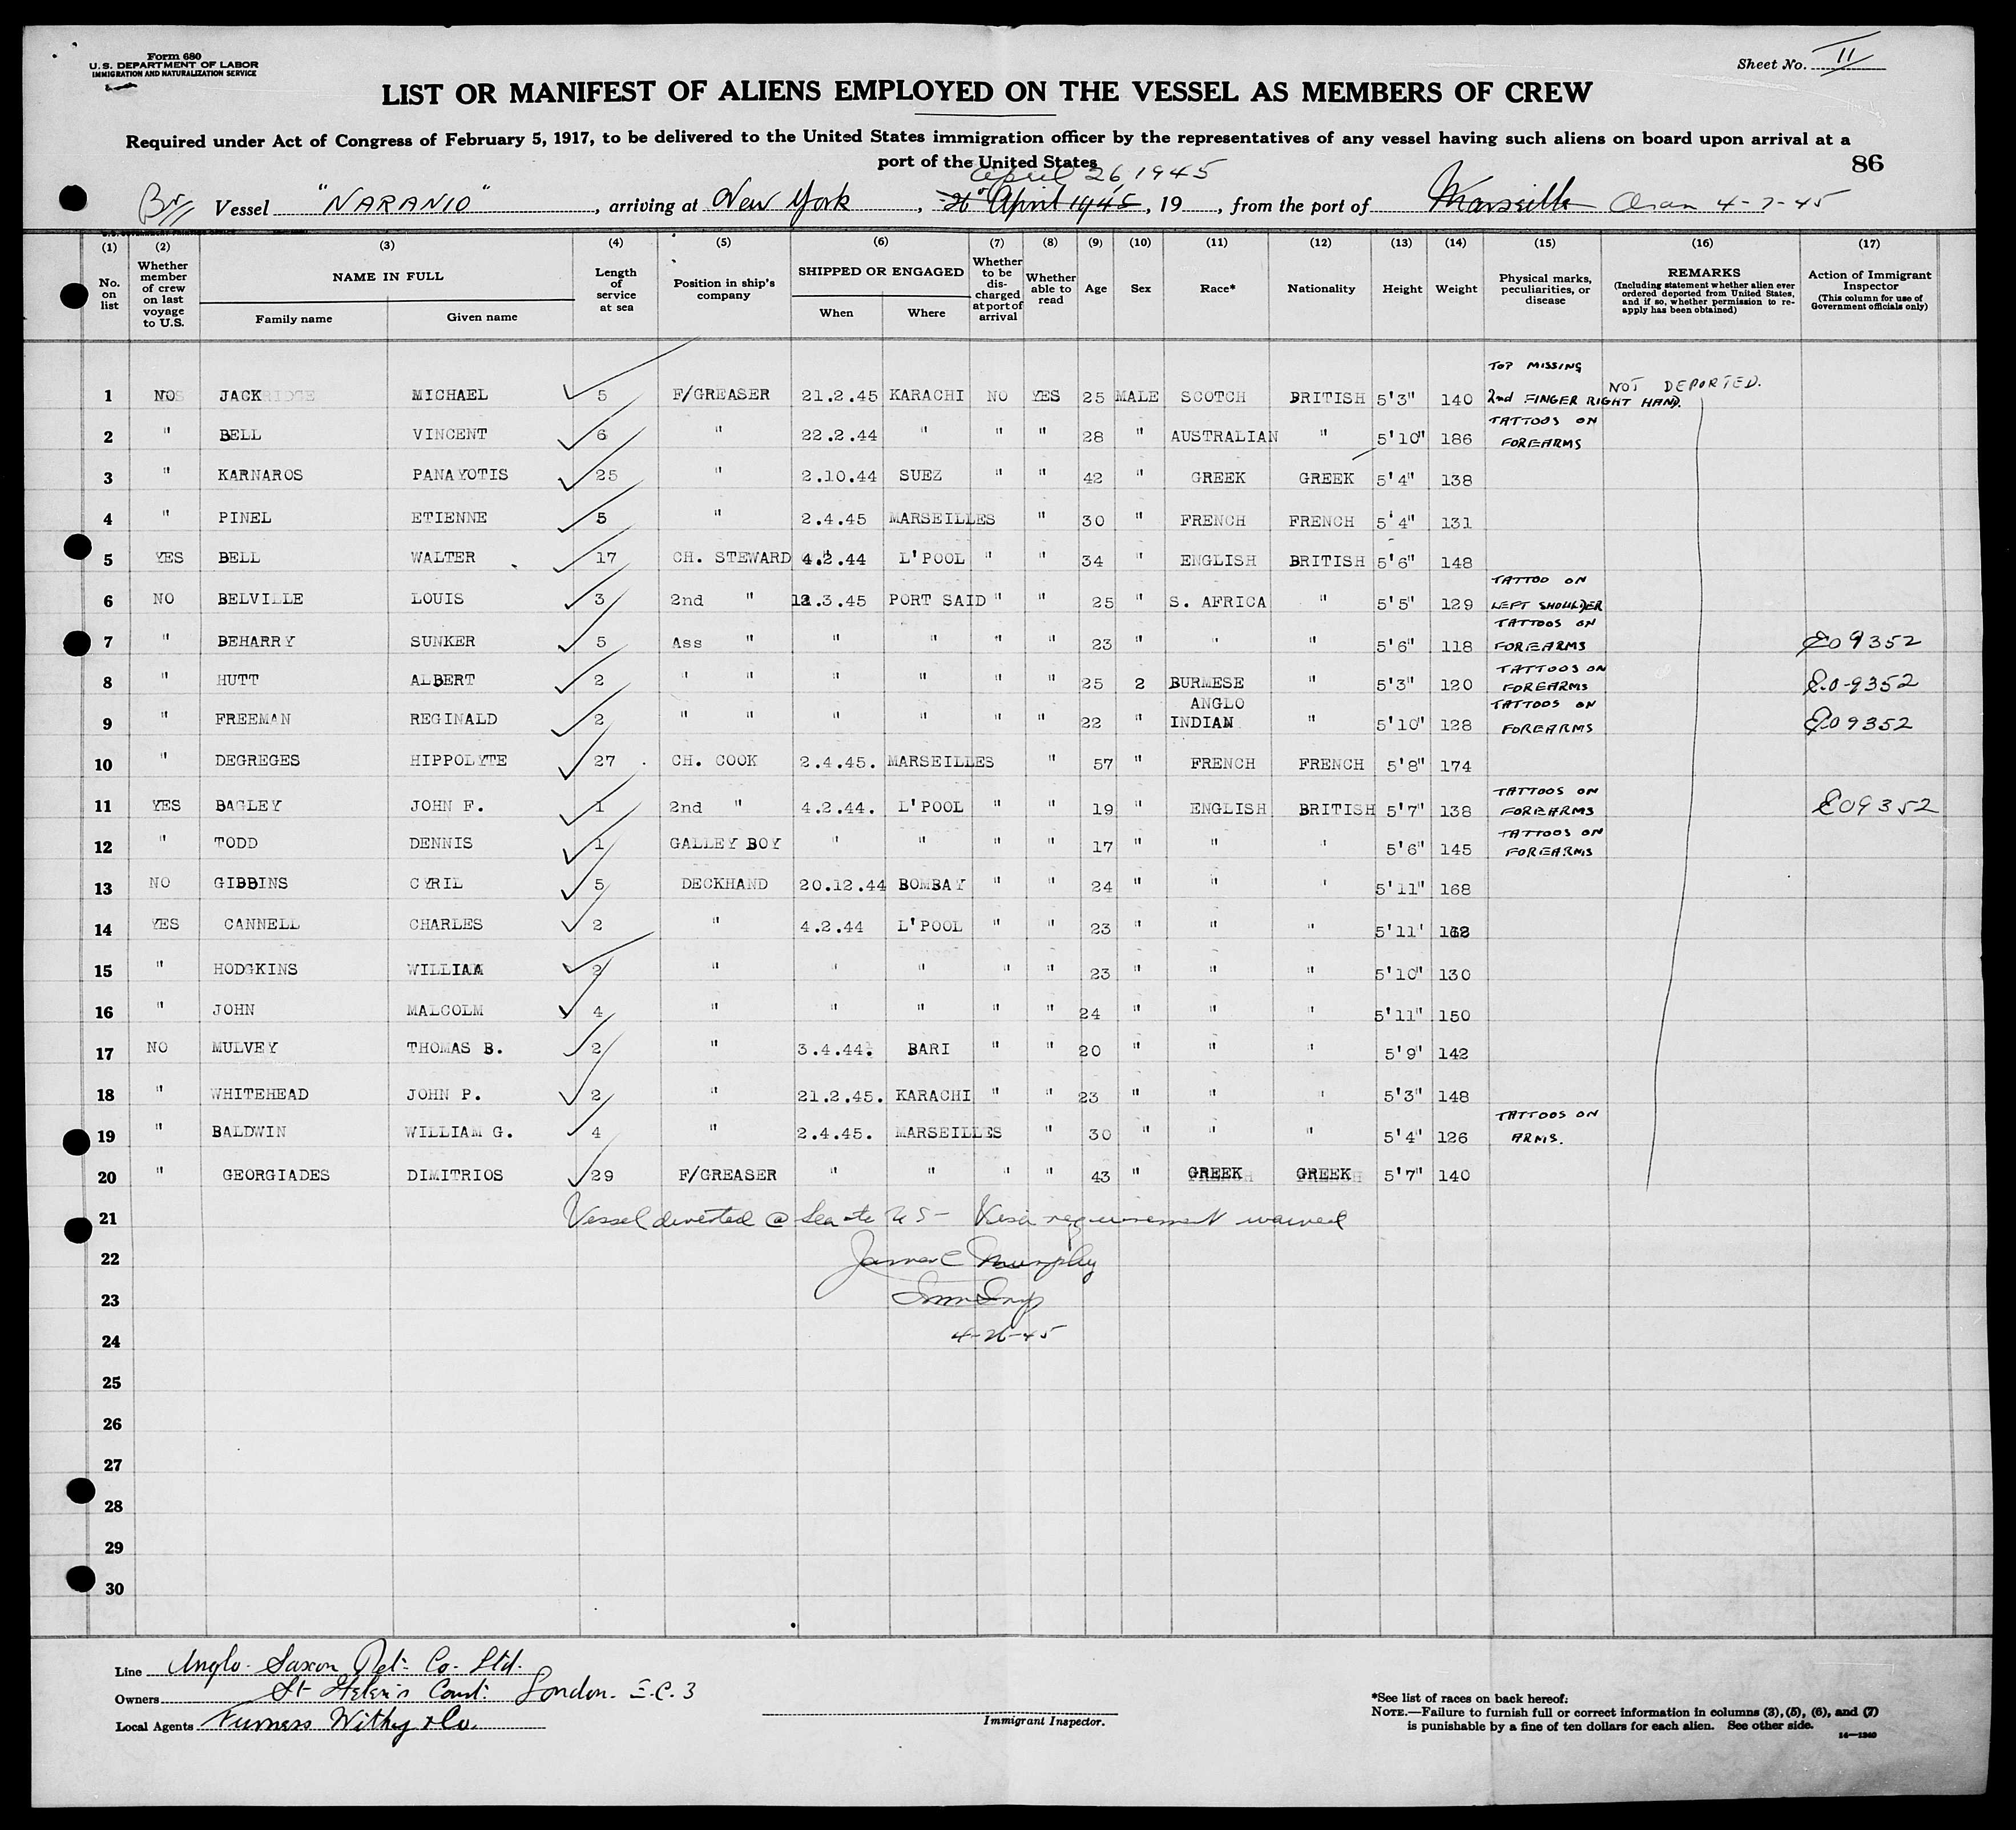 Form 680
U. S. DEPARTMENT OF LABOR
IMMIGRATION AND NATURALIZATION SERVICE
Sheet No. II
LIST OR MANIFEST OF ALIENS EMPLOYED ON THE VESSEL AS MEMBERS OF CREW
Required under Act of Congress of February 5, 1917, to be delivered to the United States immigration officer by the representatives of any vessel having such aliens on board upon arrival at a
port of the United States
86
April 26 1945
Br Vessel "NARANIO", arriving at New York, 26 April 1945, 19, from the port of Marseille Oran 4-7-45
(1) (2) (3) (4) (5) (6) (7) (8) (9) (10) (11) (12) (13) (14) (15) (16) (17)
No. on list
Whether member of crew on last voyage to U.S.
NAME IN FULL
Family name Given name
Length of service at sea
Position in ship's company
SHIPPED OR ENGAGED
When Where
Whether to be discharged at port of arrival
Whether able to read
Age Sex Race* Nationality Height Weight
Physical marks, peculiarities, or disease
REMARKS
(Including statement whether alien ever ordered deported from United States, and if so, whether permission to reapply has been obtained)
Action of Immigrant Inspector
(This column for use of Government officials only)
1 NO JACK MICHAEL 5 F/GREASER 21.2.45 KARACHI NO YES 25 MALE SCOTCH BRITISH 5'3" 140 TOP MISSING 2nd FINGER RIGHT HAND. NOT DEPORTED.
2 " BELL VINCENT 6 " 22.2.44 " " " 28 " AUSTRALIAN " 5'10" 186 TATTOOS ON FOREARMS
3 " KARNAROS PANAYOTIS 25 " 2.10.44 SUEZ " " 42 " GREEK GREEK 5'4" 138
4 " PINEL ETIENNE 5 " 2.4.45 MARSEILLES " 30 " FRENCH FRENCH 5'4" 131
5 YES BELL WALTER 17 CH. STEWARD 4.2.44 L'POOL " " 34 " ENGLISH BRITISH 5'6" 148
6 NO BELVILLE LOUIS 3 2nd " 12.3.45 PORT SAID " " 25 " S. AFRICA " 5'5" 129 TATTOO ON LEFT SHOULDER
7 " BEHARRY SUNKER 5 Ass " " " " " 23 " " " 5'6" 118 TATTOOS ON FOREARMS EO 9352
8 " HUTT ALBERT 2 " " " " " " 25 2 BURMESE " 5'3" 120 TATTOOS ON FOREARMS E.O-9352
9 " FREEMAN REGINALD 2 " " " " " " 22 " ANGLO INDIAN " 5'10" 128 TATTOOS ON FOREARMS EO 9352
10 " DEGREGES HIPPOLYTE 27 CH. COOK 2.4.45. MARSEILLES " 57 " FRENCH FRENCH 5'8" 174
11 YES BAGLEY JOHN F. 1 2nd " 4.2.44. L'POOL " " 19 " ENGLISH BRITISH 5'7" 138 TATTOOS ON FOREARMS EO9352
12 " TODD DENNIS 1 GALLEY BOY " " " " 17 " " " 5'6" 145 TATTOOS ON FOREARMS
13 NO GIBBINS CYRIL 5 DECKHAND 20.12.44 BOMBAY " " 24 " " " 5'11" 168
14 YES CANNELL CHARLES 2 " 4.2.44 L'POOL " " 23 " " " 5'11'
15 " HODGKINS WILLIAM 2 " " " " " 23 " " " 5'10" 130
16 " JOHN MALCOLM 4 " " " " " 24 " " " 5'11" 150
17 NO MULVEY THOMAS B. 2 " 3.4.44. BARI " " 20 " " " 5'9" 142
18 " WHITEHEAD JOHN P. 2 " 21.2.45. KARACHI " " 23 " " " 5'3" 148
19 " BALDWIN WILLIAM G. 4 " 2.4.45. MARSEILLES " 30 " " " 5'4" 126 TATTOOS ON ARMS.
20 " GEORGIADES DIMITRIOS 29 F/GREASER " " " " 43 " GREEK GREEK 5'7" 140
21 Vessel diverted @ Sea to U S - Visa requirement waived
22 James C Murphy
23 Imm Insp
24 4-26-45
25
26
27
28
29
30
Line Anglo-Saxon Pet. Co. Ltd.
Owners St Helen's Court. London. E.C.3
Local Agents Furness Withy & Co.
Immigrant Inspector.
*See list of races on back hereof.
NOTE.—Failure to furnish full or correct information in columns (3), (5), (6), and (7)
is punishable by a fine of ten dollars for each alien. See other side.
14—1240